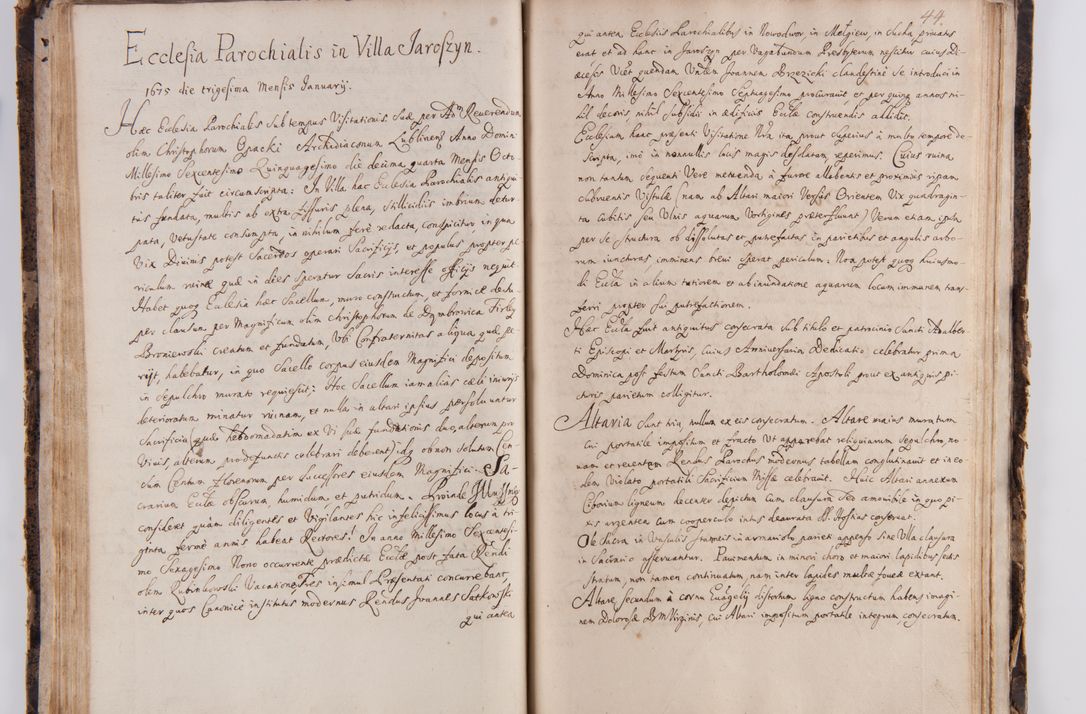 Ecclesia Parochialis in Villa Jaroszyn.
1675 die trigesima Mensis Januarij.
Hæc Ecclesia Parochialis sub tempus Visitationis suæ per Adm Reverendum
olim Christophorum Gpacki Archidiaconum Lublinen Anno Domini
Millesimo Sexcentesimo Quinquagesimo die decima quarta Mensis Octo-
bris taliter fuit circumscripta: In Villa hac Ecclesia Parochialis antiqui-
tus fundata, multis ab extra fissuris plena, stillicidiis imbrium detur-
pata, vetustate consumpta, in nihilum ferè redacta, conspicitur in qua
Vix Divinis potest Sacerdos operari Sacrificijs, et populus propter pe-
riculum ruinæ quæ in dies speratur sacris interesse officijs nequit.
Habet quoq Ecclesia hæc Sacellum, muro constructum, et fornice desu-
per clausum per Magnificum olim Christophorum de Dombrovica Firley
Broniewski creatum et fundatum, Ubi Confraternitas aliqua quæ pe-
rijt, habebatur, in quo Sacello Corpus eiusdem Magnifici depositum
in Sepulchro murato requiescit: Hoc Sacellum iam alias cæli iniurijs
deterioratum minatur ruinam, et nulla in altari ipsius persolvuntur
Sacrificia (quæ hebdomadatim ex Vi suæ fundationis duo, alterum pro
Vivis, alterum pro defunctis celebrari deberent) idq ob non solutum Cen-
sum Centum florenorum per Successores eiusdem Magnifici. Sa-
crarium Eccłæ obscurum, humidum et putridum. Proinde
consideret quam diligentes et Vigilantes hic infelicissimus locus à tri-
ginta fermè annis habeat Rectores. In anno Millesimo Sexcentesi-
mo Sexagesimo Nono occurrente prædictæ Eccłæ post fata Rendi
olim Rubinkowski Vacatione, Tres insimul Præsentati concurrebant,
inter quos Canonicè institutus modernus Rendus Joannes Satkowski
qui antea
44.
qui antea Ecclesijs Parochialibus in Nowodwor, in Mełgiew, in Sucha privatus
erat et ad hanc in Jaroszyn per Vagabundum Presbyterum nescitur cuius Di-
æcesis Vice quendam Joannem Brzezicki clandestinè se introduci in
Anno Millesimo Sexcentesimo Septuagesimo procuravit, et per quinq annos ni-
hil decoris, nihil subsidii in ædificiis Eccłæ construendis addidit.
Ecclesiam hanc præsenti Visitatione Nra ita prout superius à multo tempore de-
scripta, imò in nonnullis locis magis desolatam reperimus. Cuius ruina
non tantum sequenti Vere metuenda à furore allabentis et proximus ripam
subruentis Vistulæ (nam ab Altari maiori Versus Orientem Vix quadragin-
ta Cubitis seu Ulnis aquarum Vertigines præterfluunt) Verum etiam ipsa
per se structura ob dissolutas et putrefactas in parietibus et angulis arbo-
rum iuncturas, imminens brevi sperat periculum: Non potest quoq huiusmo-
di Eccła in alium tutiorem et ab inundatione aquarum locum immunem tran-
sferri propter sui putrefactionem.
Hæc Eccła fuit antiquitus consecrata sub titulo et patrocinio Sancti Adalber-
ti Episcopi et Martyris, cuius Anniversarium Dedicatio celebratur prima
Dominica post festum Sancti Bartholomæi Apostoli prout ex antiquis pi-
cturis parietum colligitur.
Altaria Sunt tria, nullum ex eis consecratum. Altare maius muratum
cui portatile impositum et fracto Ut apparebat reliquiarum Sepulchro no-
nam et recentem Rendus Parochus modernus tabellam conglutinavit et in eo-
dem Violato portatili Sacrificium Missæ celebravit. Huic Altari annexum
Ciborium ligneum decenter depictum cum clausura sed amovibile in quo pi-
xis argentea cum cooperculo intus deaurata SS. Hostias conservat.
Olea Sacra in Vasculis stanneis in armariolo parieti appenso sine Ulla clausura
in Sacrario asservantur. Pavimentum in minori choro et maiori lapidibus seu
stratum, non tamen continuatum, nam inter lapides multæ foveæ extant.
Altare secundum à cornu Evagelij distortum ligno constructum habens imagi-
nem Dolorosæ B M Virginis, cui Altari impositum portatile integrum consecratum.